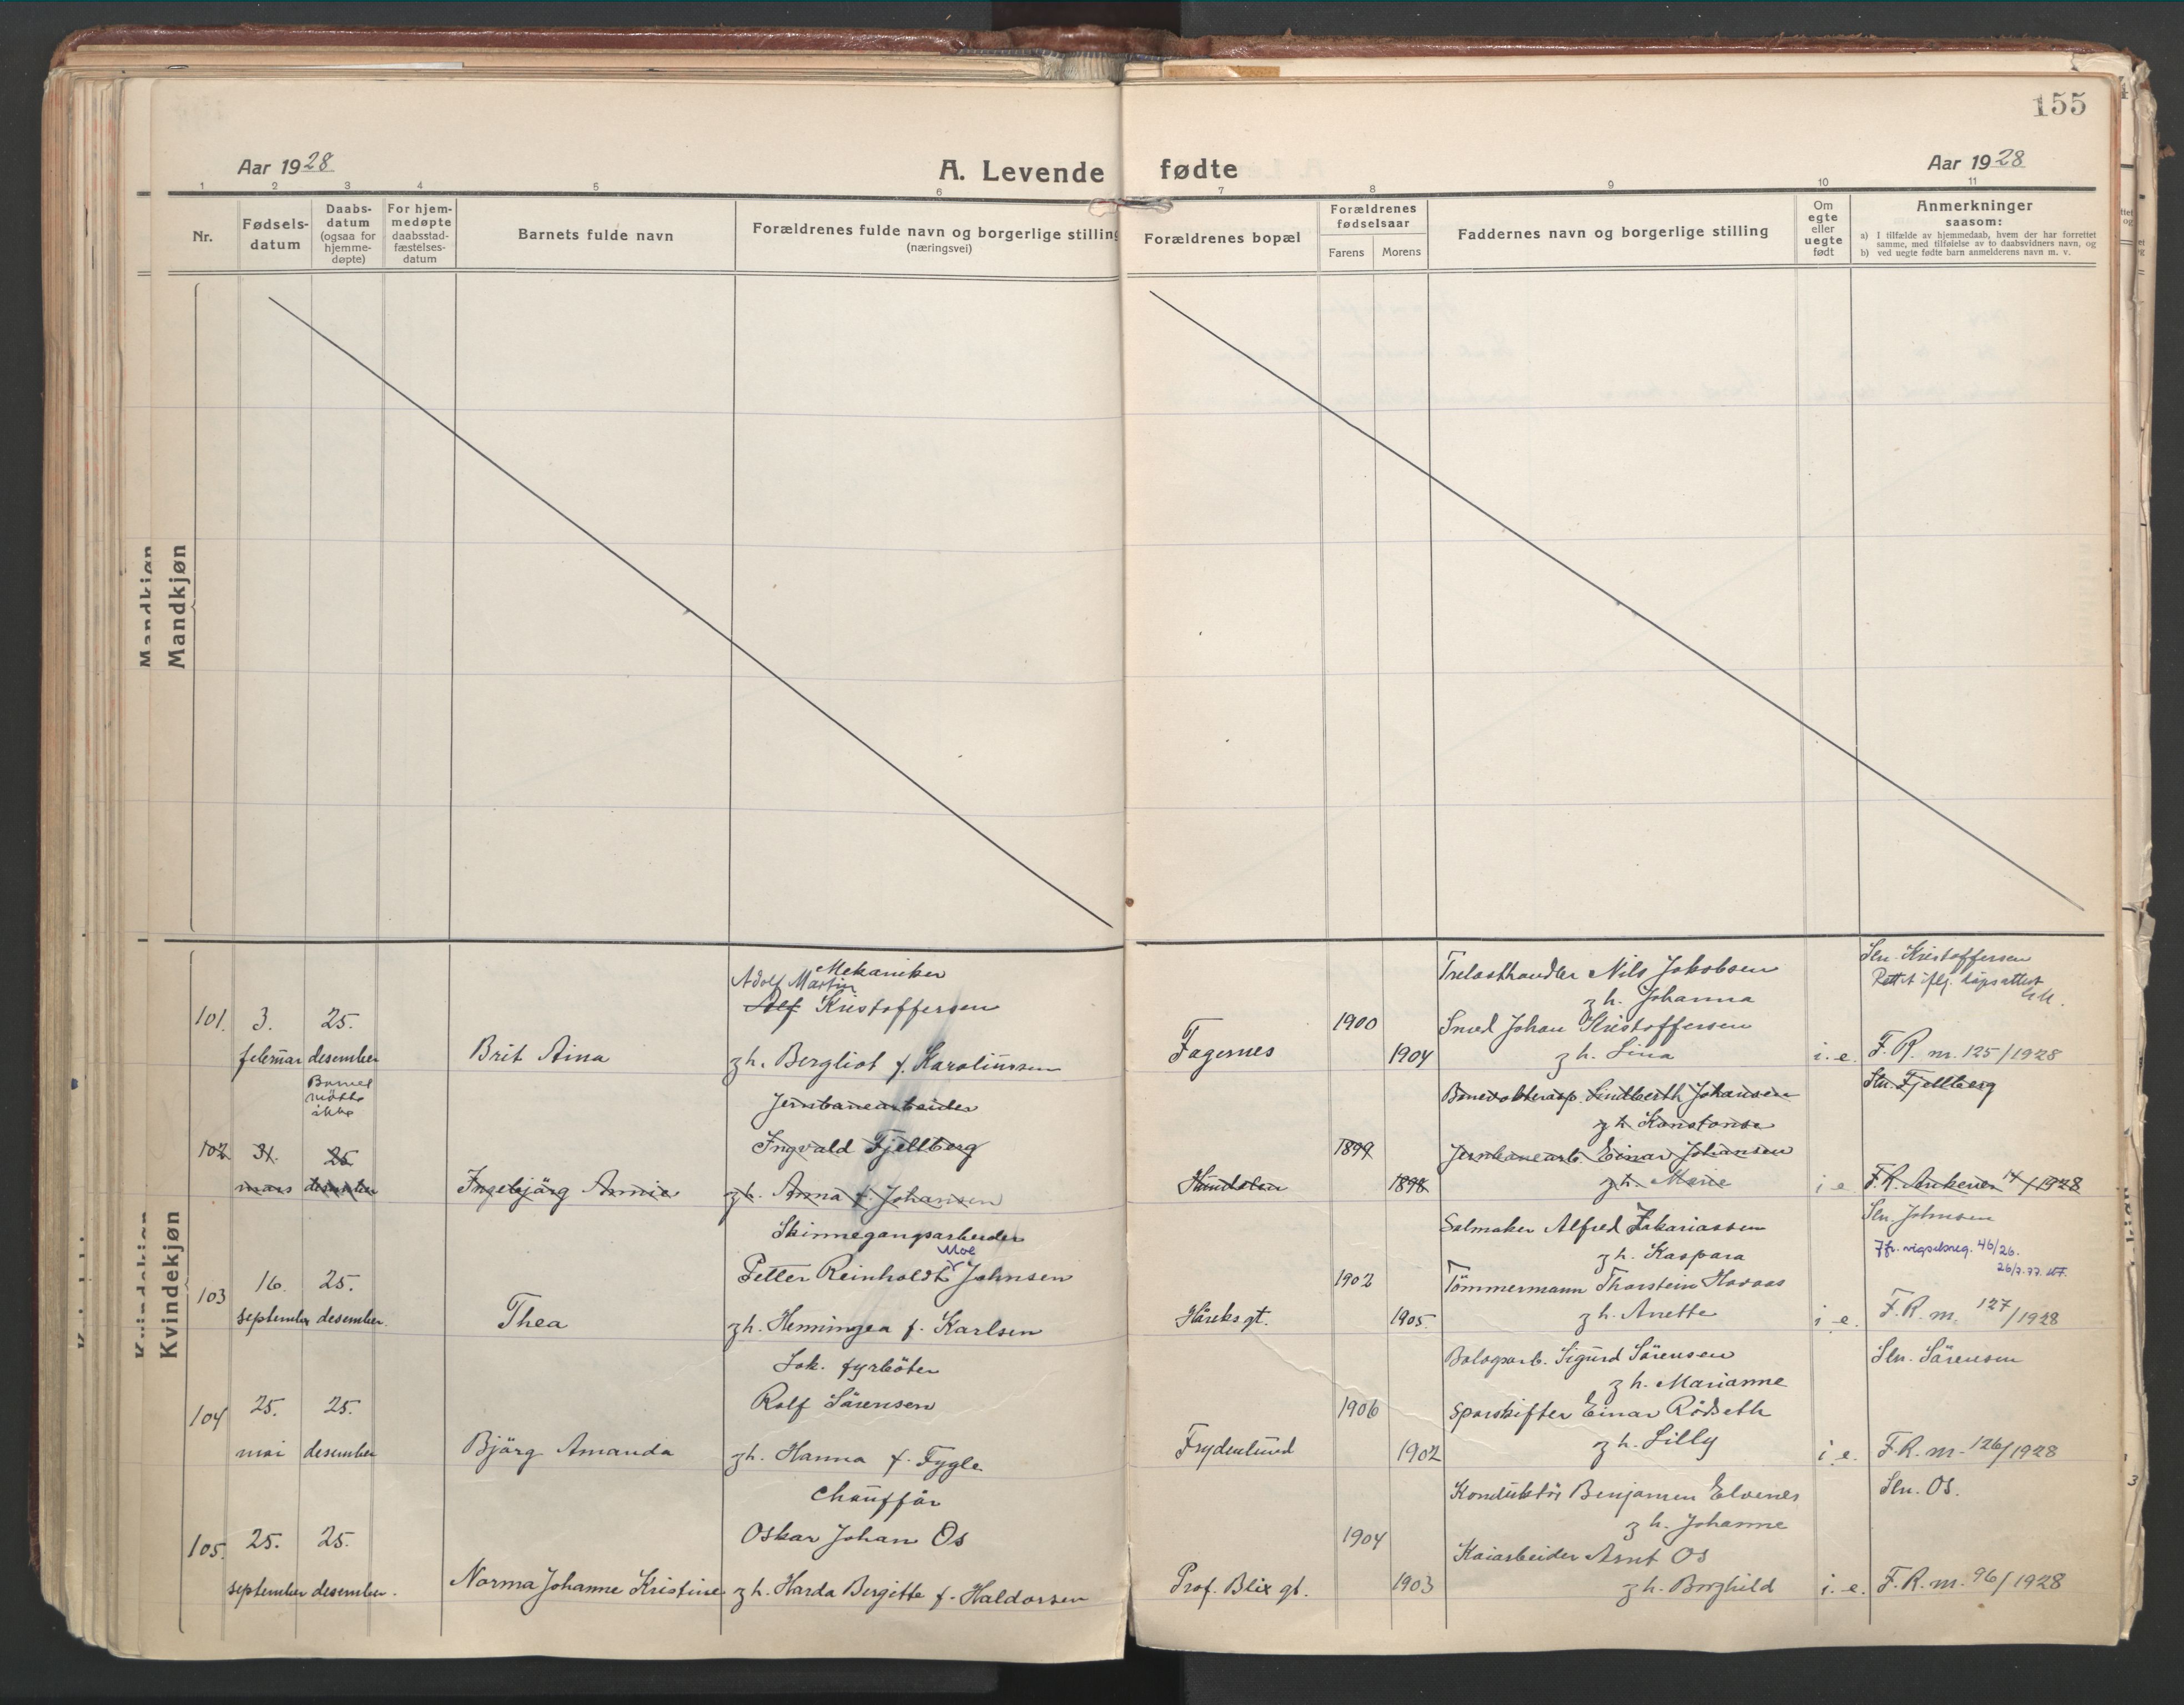 155
Aar 1928
A. Levende fødte
Aar 1928
1 2 3 4 5 6 7 8 9 10 11
Nr.
Fødsels-
datum
Daabs-
datum
(ogsaa for
hjemme-
døpte)
For hjem-
medøpte
daabsstad-
fæstelses-
datum
Barnets fulde navn
Forældrenes fulde navn og borgerlige stilling
(næringsvei)
Forældrenes bopæl
Forældrenes
fødselsaar
Farens Morens
Faddernes navn og borgerlige stilling
Om
egte
eller
uegte
født
Anmerkninger
saasom:
a) I tilfælde av hjemmedaab, hvem der har forrettet
samme, med tilføielse av to daabsvidners navn, og
b) ved uegte fødte barn anmelderens navn m. v.
Mandkjøn
Kvindekjøn
101. 3. februar
25. desember
Brit Aina
Mekaniker
Adolf Martin
Alf Kristoffersen
z h. Bergliot f. Karoliussen
Fagernes
1900
1904
Trelasthandler Nils Jakobsen
z h. Johanna
Smed Johan Kristoffersen
z h. Lina
i. e.
Sln. Kristoffersen
Rettet iflg. dåpsattest
F. R. nr. 125/1928
102 31. mars
25 desember
Barnet
møtte
ikke
Ingebjörg Annie
Jernbanearbeider
Ingvald Fjellberg
z h. Anna f. Johansen
1899
1898
Lindberth Johansen
z h. Konstanse
Jernbanearb. Einar Johansen
z h. Marie
i e.
Sln. Fjellberg
F. R. Ankenes 14/1928
103 16. september
25. desember.
Thea
Skinnegangsarbeider
Moe
Petter Reinholdt Johnsen
z h. Henningea f. Karlsen
Håreks gt.
1902
1905.
Salmaker Alfred Zakariassen
z h. Kaspara
Tömmermann Thorstein Havaas
z h. Anette
i e.
Sln. Johnsen
Jfr. vigselsreg. 46/26.
26/7.77.
F. R. nr. 127/1928
104 25. mai
25. desember
Björg Amanda
Lok. fyrböter
Rolf Sörensen
z h. Hanna f. Fygle
Frydenlund
1906
1902
Bologsarb. Sigurd Sörensen
z h. Marianne
Sporskifter Einar Rödseth
z h. Lilly
i e.
Sln. Sörensen
F. R. nr. 126/1928
105. 25. september
25. desember.
Norma Johanne Kristine
Chaufför
Oskar Johan Os
z h. Harda Bergitte f. Haldorsen
Prof. Blix gt.
1904
1903
Konduktör Benjamin Elvenes
z h. Johanne
Kaiarbeider Arnt Os
z h. Borghild
i. e.
Sln. Os.
F. R. nr. 96/1928